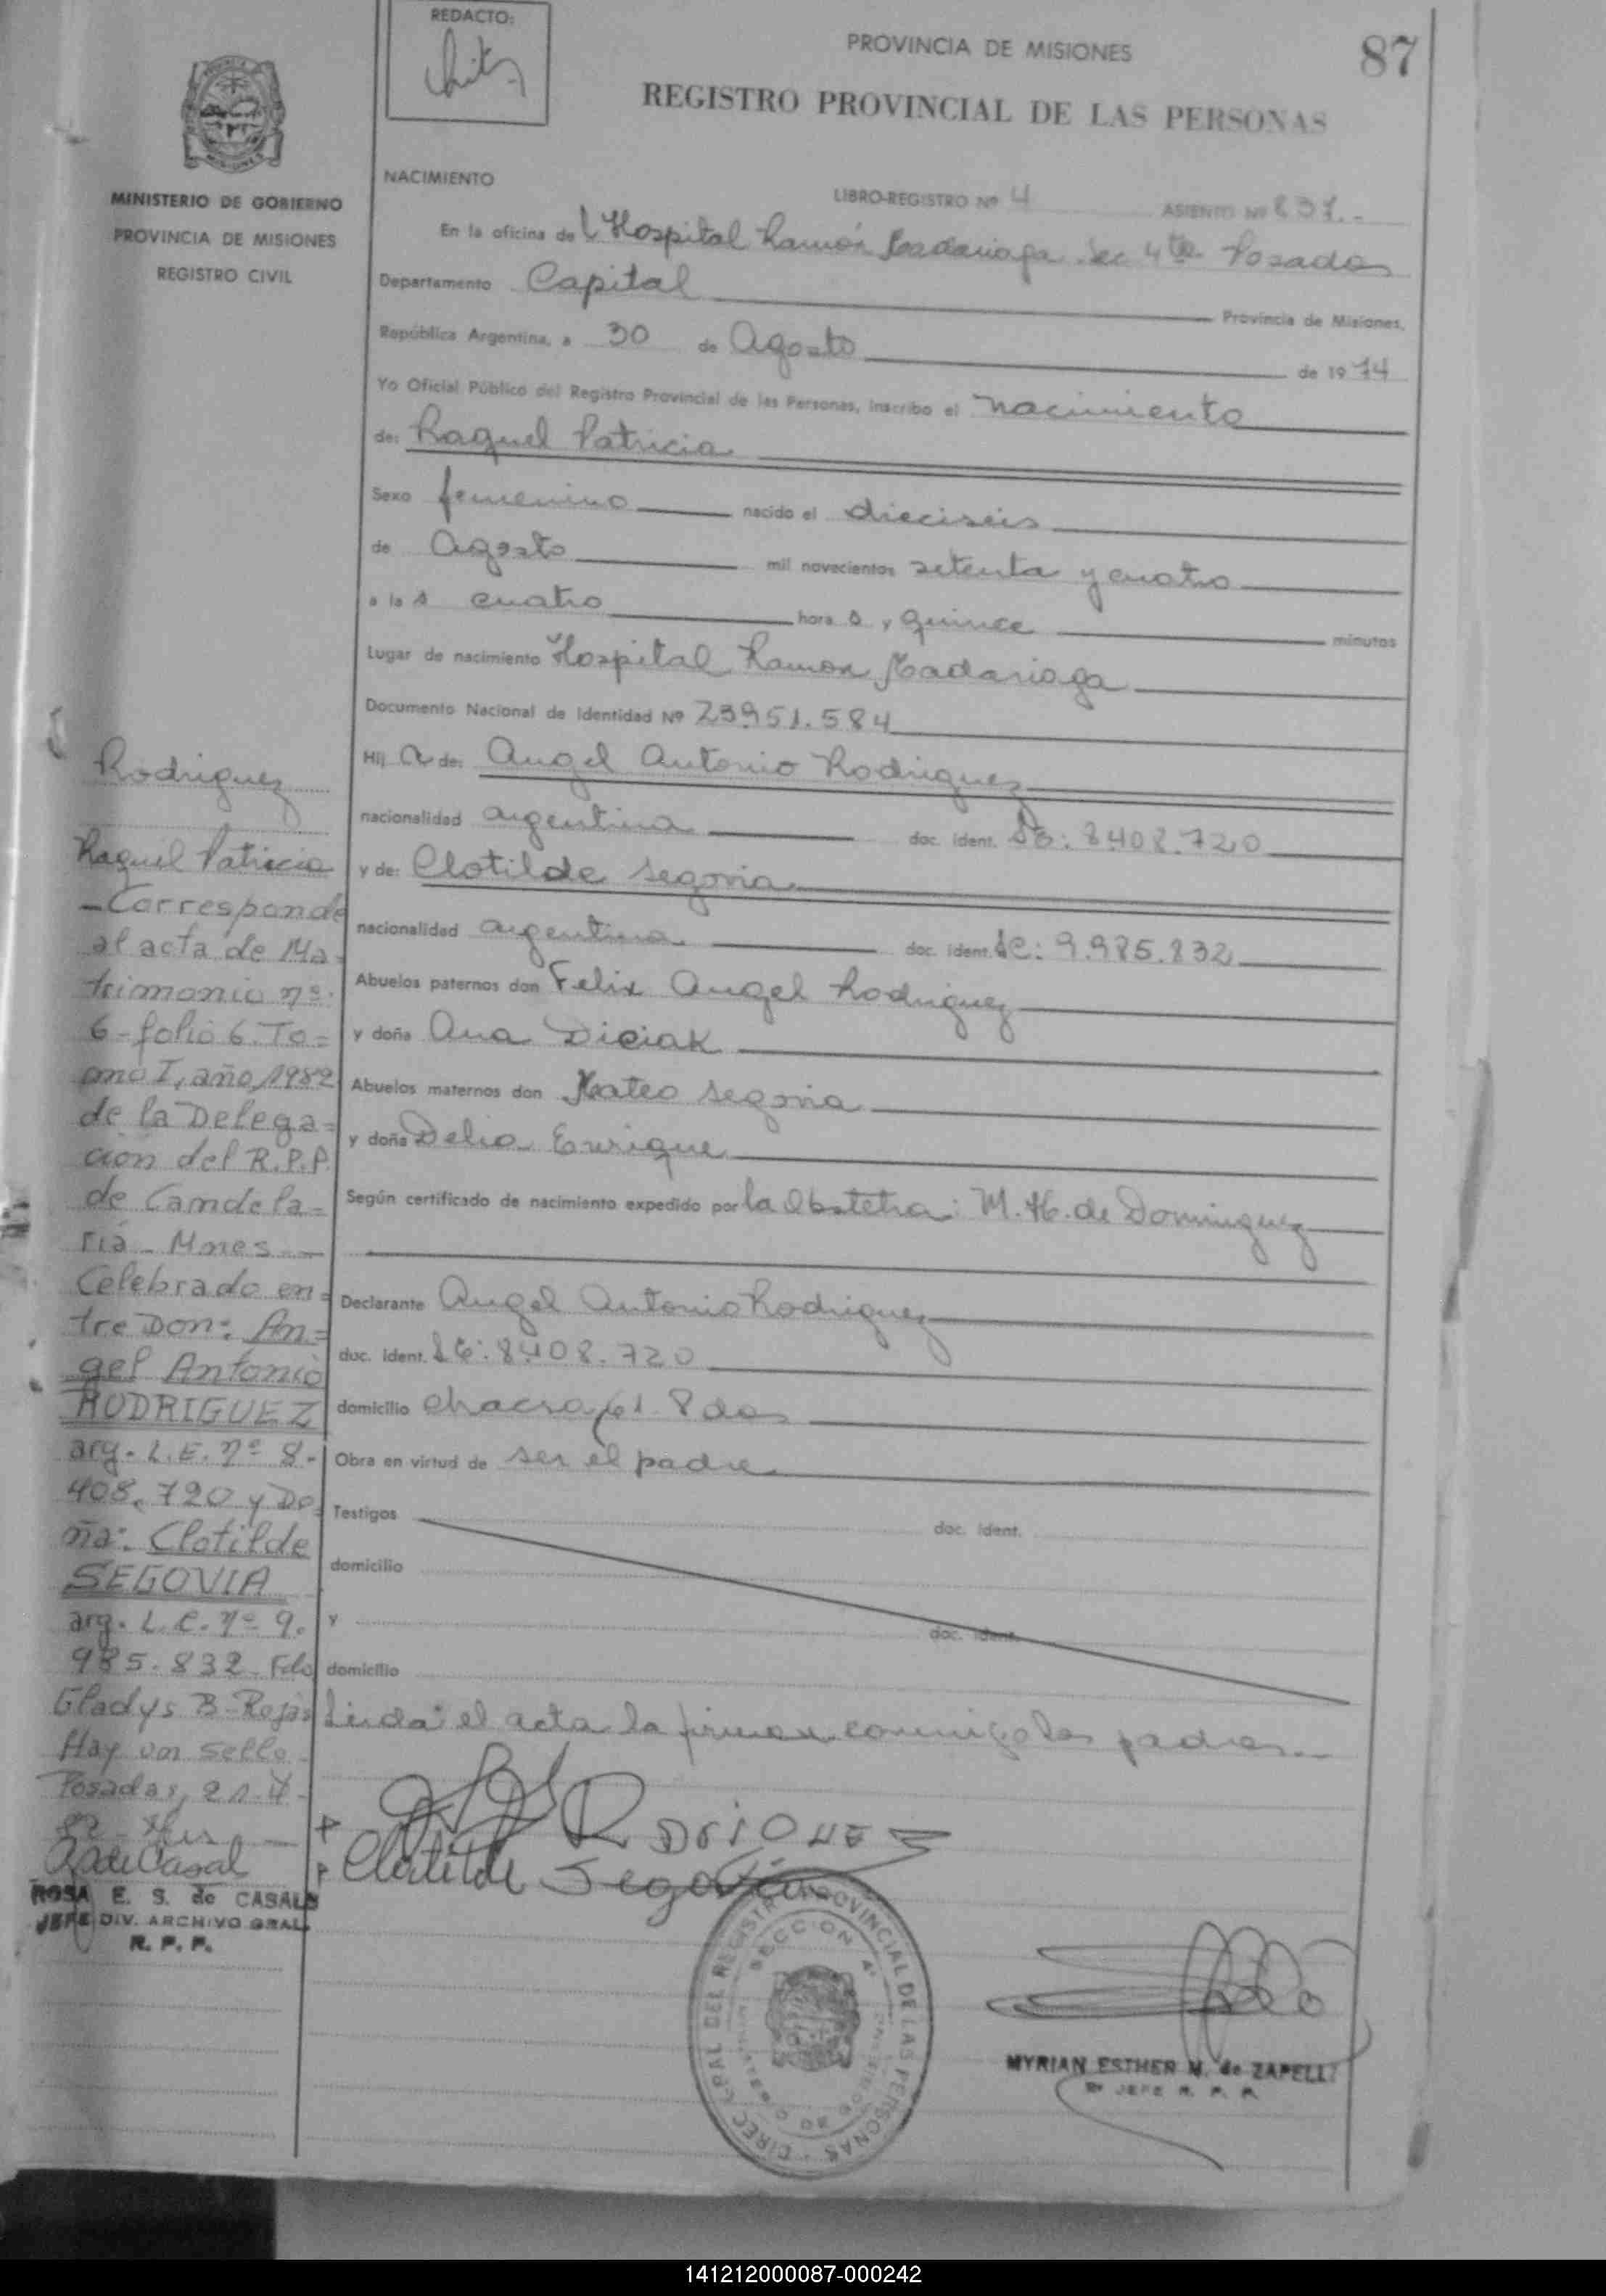 REDACTO:
PROVINCIA DE MISIONES
87
REGISTRO PROVINCIAL DE LAS PERSONAS
MINISTERIO DE GOBIERNO
PROVINCIA DE MISIONES
REGISTRO CIVIL
NACIMIENTO
LIBRO-REGISTRO Nº 4 ASIENTO Nº 837.-
En la oficina del Hospital Ramón Madariaga Sec 4ta Posadas
Departamento Capital Provincia de Misiones,
República Argentina, a 30 de Agosto de 1974
Yo Oficial Público del Registro Provincial de las Personas, inscribo el nacimiento
de: Raquel Patricia
Sexo femenino nacido el dieciseis
de Agosto mil novecientos setenta y cuatro
a las cuatro horas y quince minutos
Lugar de nacimiento Hospital Ramon Madariaga
Documento Nacional de Identidad Nº 23951.584
Hija de: Angel Antonio Rodriguez
nacionalidad argentina doc. ident. LE: 8.408.720
y de: Clotilde Segovia
nacionalidad argentina doc. ident. LC: 9.985.832
Abuelos paternos don Felix Angel Rodriguez
y doña Ana Diciak
Abuelos maternos don Mateo Segovia
y doña Delia Enrique
Según certificado de nacimiento expedido por la Obstetra: M. H. de Dominguez
Declarante Angel Antonio Rodriguez
doc. ident. LE: 8.408.720
domicilio chacra 61. Pdas
Obra en virtud de ser el padre
Testigos doc. ident.
domicilio
y doc. ident.
domicilio
Leida el acta la firman conmigo los padres
RODRIGUEZ
Clotilde Segovia
Rodriguez
Raquel Patricia
-Corresponde
al acta de Ma=
trimonio nº:
6-folio 6. To=
mo I, año 1982
de la Delega=
ción del R.P.P.
de Candela=
ria - Mnes
Celebrado en=
tre Don: An=
gel Antonio
RODRIGUEZ
arg. L.E. nº 8.
408.720 y Do
ña: Clotilde
SEGOVIA
arg. L.C. nº 9.
985.832 - Fdo
Gladys B. Rojas
Hay un sello
Posadas, 21-4-
82
R de Casal
ROSA E. S. de CASALS
JEFE DIV. ARCHIVO GRAL.
R. P. P.
DIREC. GRAL DEL REGISTRO PROVINCIAL DE LAS PERSONAS
SECCION 4ª
MYRIAN ESTHER M. de ZAPELLI
JEFE R. P. P.
141212000087-000242